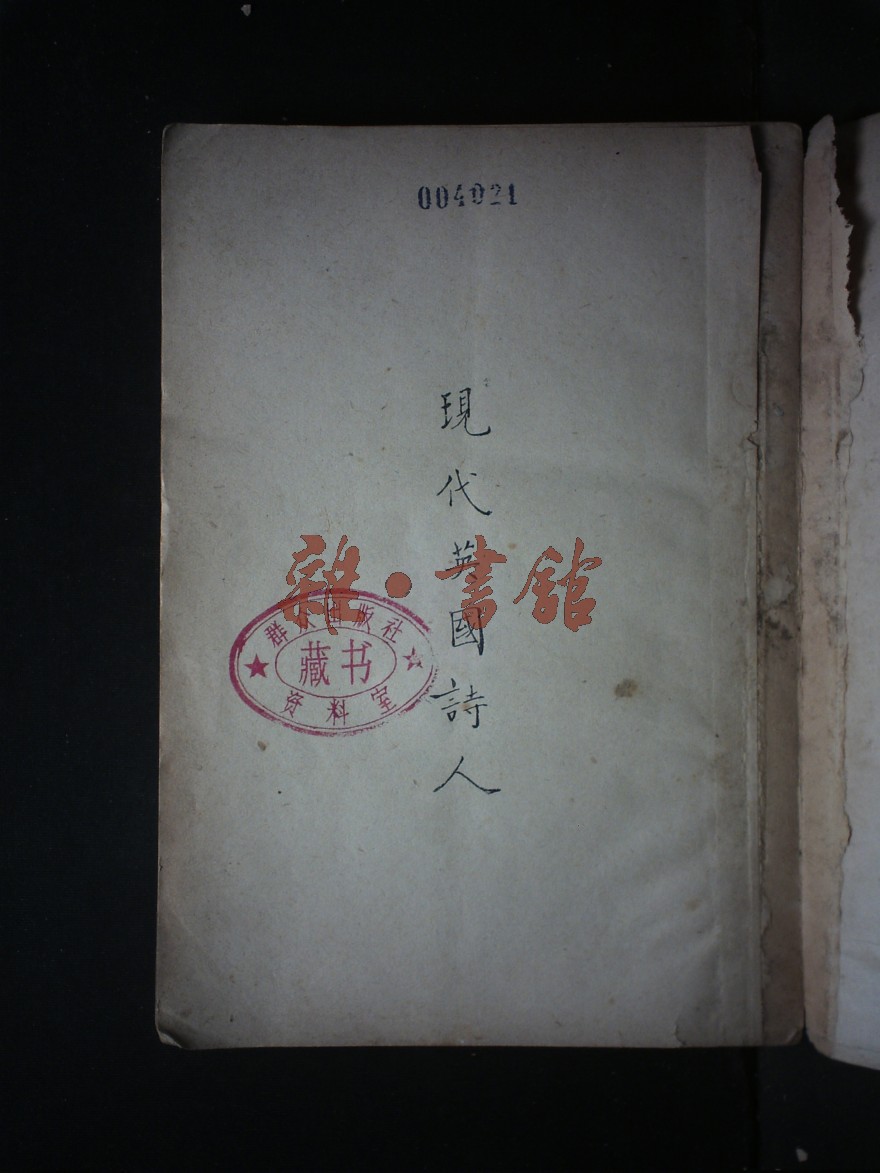 004021
現代英國詩人
雜·書館
群众出版社
藏书
资料室